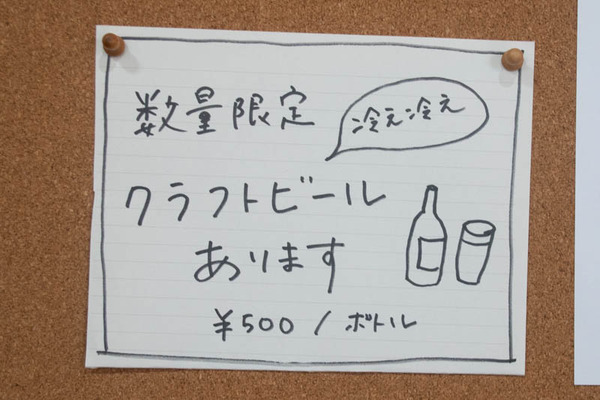 数量限定
冷え冷え
クラフトビール
あります
¥500 / ボトル